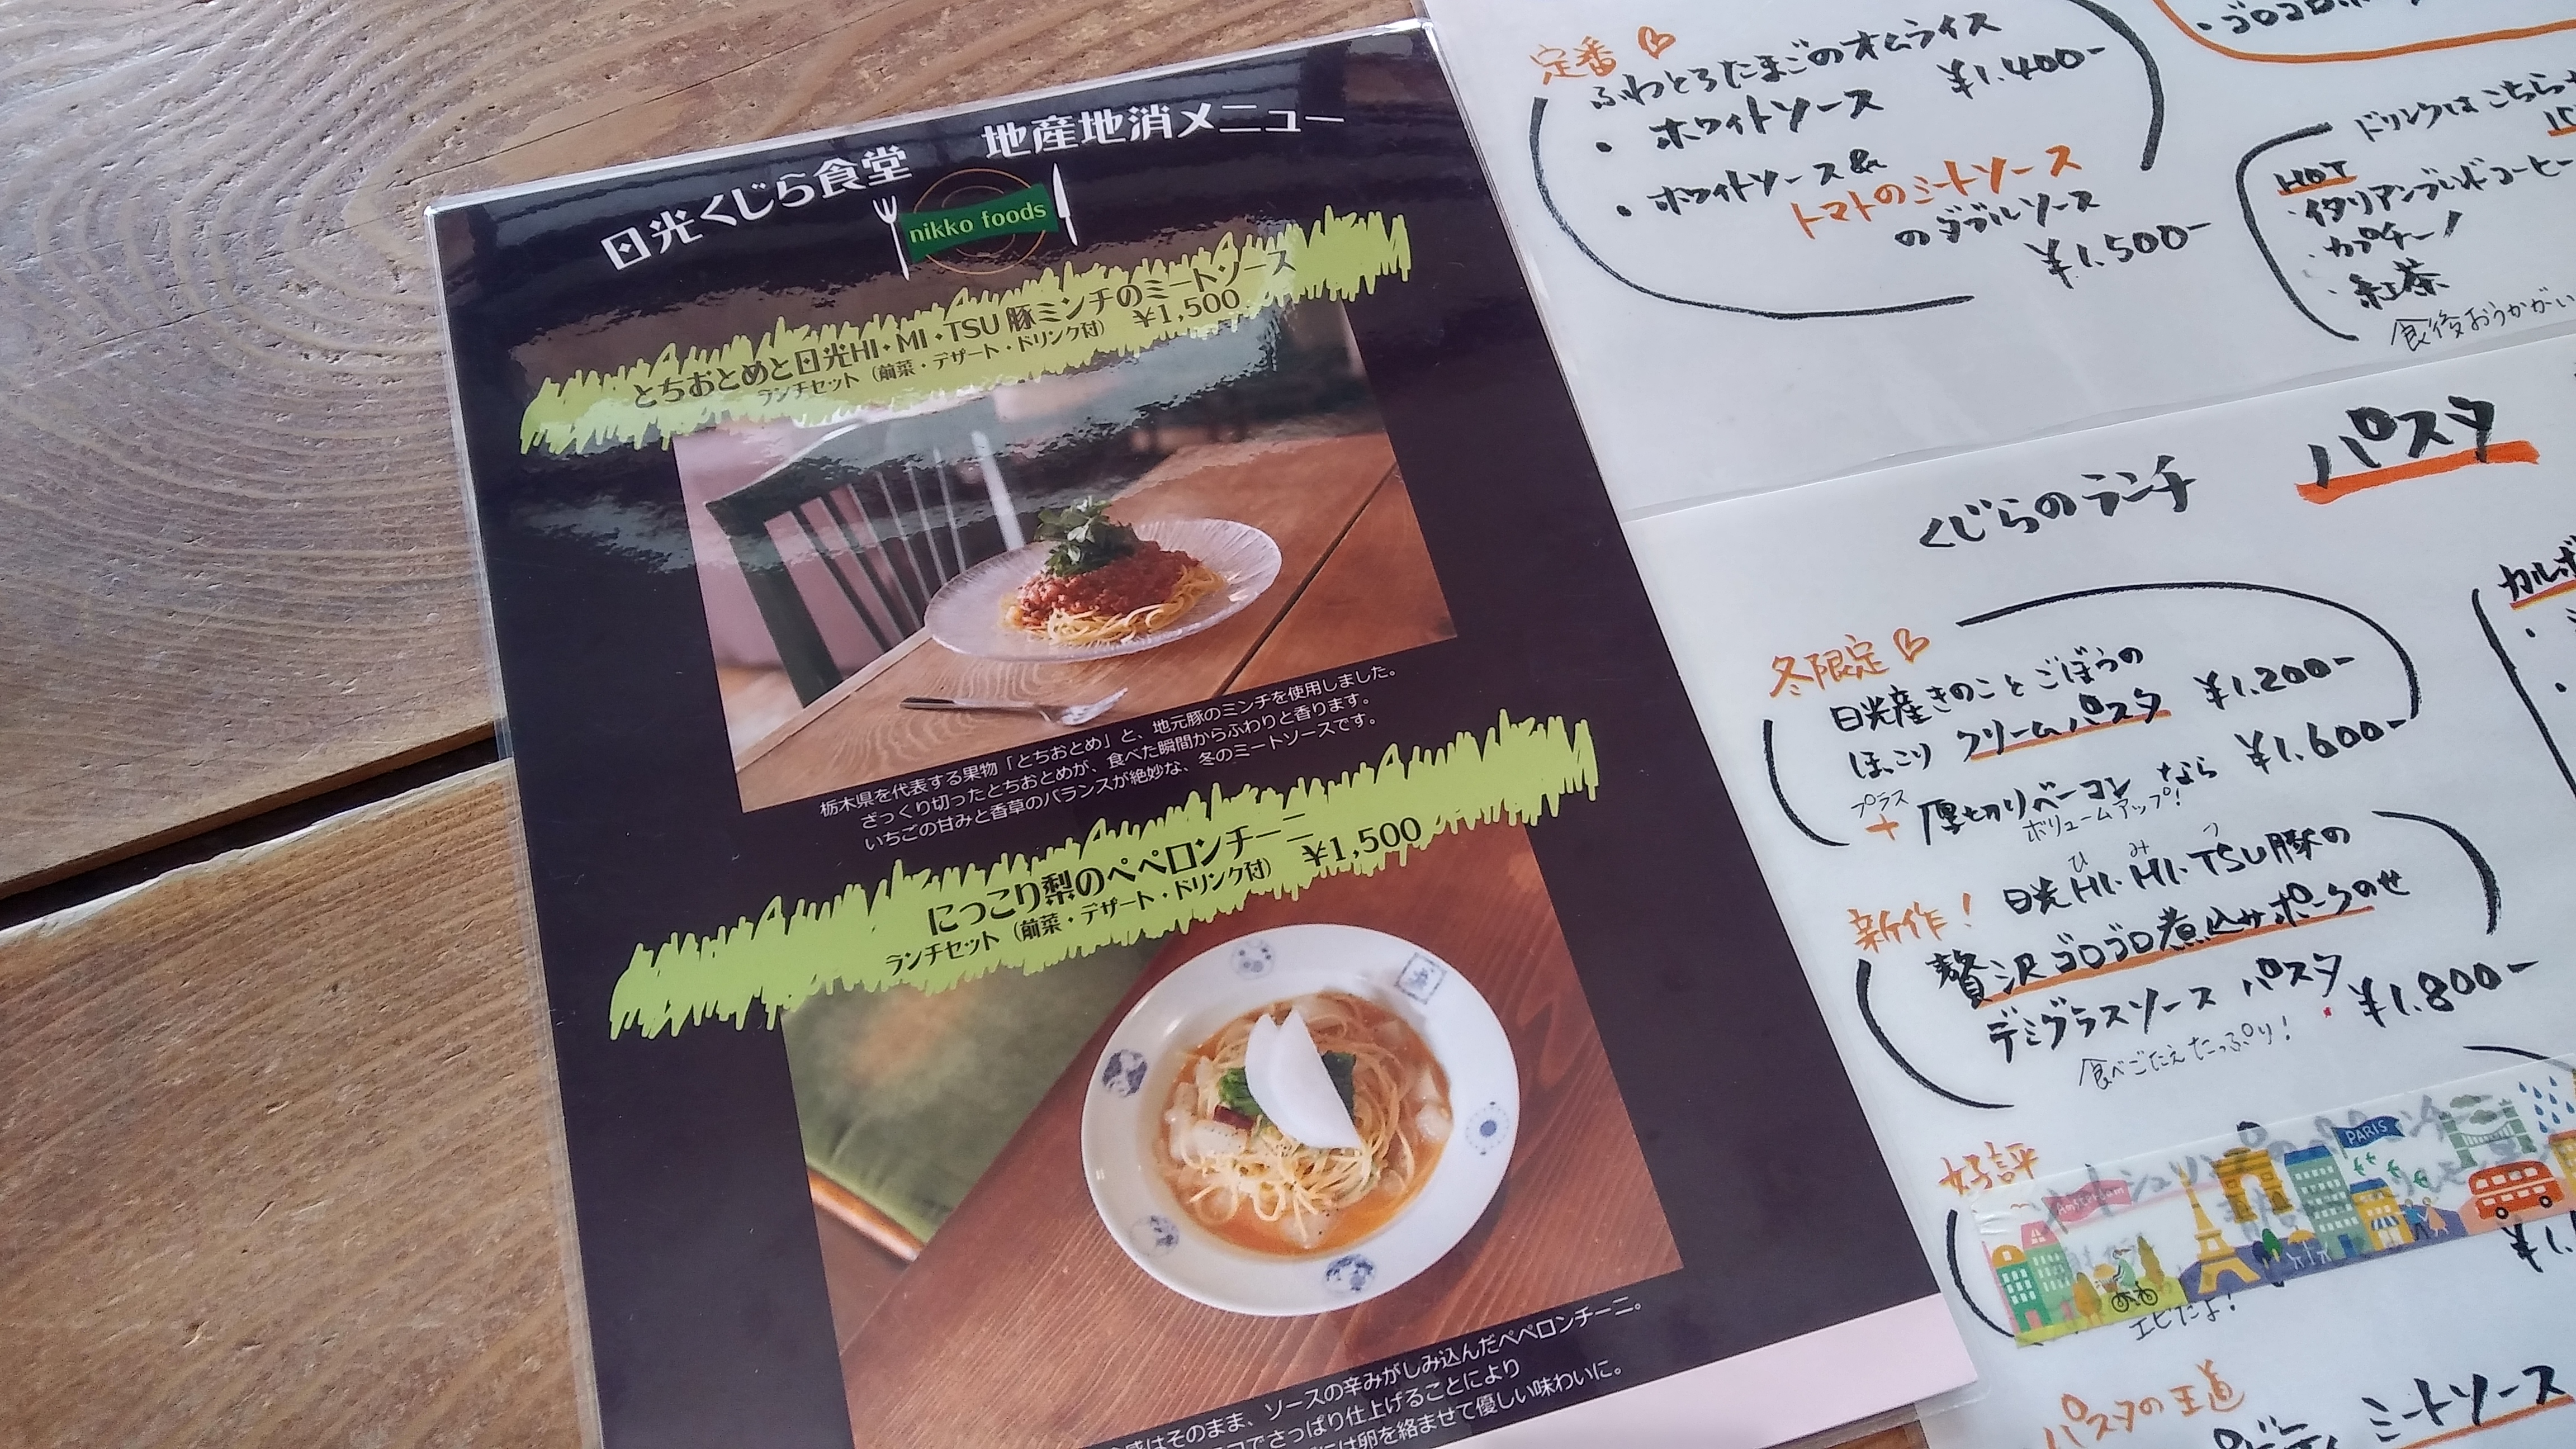 日光くじら食堂 地産地消メニュー
nikko foods
とちおとめと日光HI・MI・TSU 豚ミンチのミートソース
ランチセット（前菜・デザート・ドリンク付） ¥1,500
栃木県を代表する果物「とちおとめ」と、地元豚のミンチを使用しました。
ざっくり切ったとちおとめが、食べた瞬間からふわりと香ります。
いちごの甘みと香草のバランスが絶妙な、冬のミートソースです。
にっこり梨のペペロンチーニ
ランチセット（前菜・デザート・ドリンク付） ¥1,500
はそのまま、ソースの辛みがしみ込んだペペロンチーニ。
でさっぱり仕上げることにより
には卵を絡ませて優しい味わいに。
定番
ふわとろたまごのオムライス
・ホワイトソース ¥1.400-
・ホワイトソース&
トマトのミートソース
のダブルソース
¥1.500-
ドリンクはこちら
HOT
・イタリアンブレンドコーヒー
・カプチーノ
・紅茶
食後おうかがい
くじらのランチ パスタ
冬限定
日光産きのことごぼうの
ほっこり クリームパスタ ¥1.200-
プラス
+厚切りベーコン なら ¥1.600-
ボリュームアップ!
ひ み つ
新作! 日光HI・MI・TSU豚の
贅沢ゴロゴロ煮込みポークのせ
デミグラスソース パスタ ¥1.800-
食べごたえたっぷり!
好評
Amsterdam
PARIS
エビだよ!
パスタの王道
ミートソース